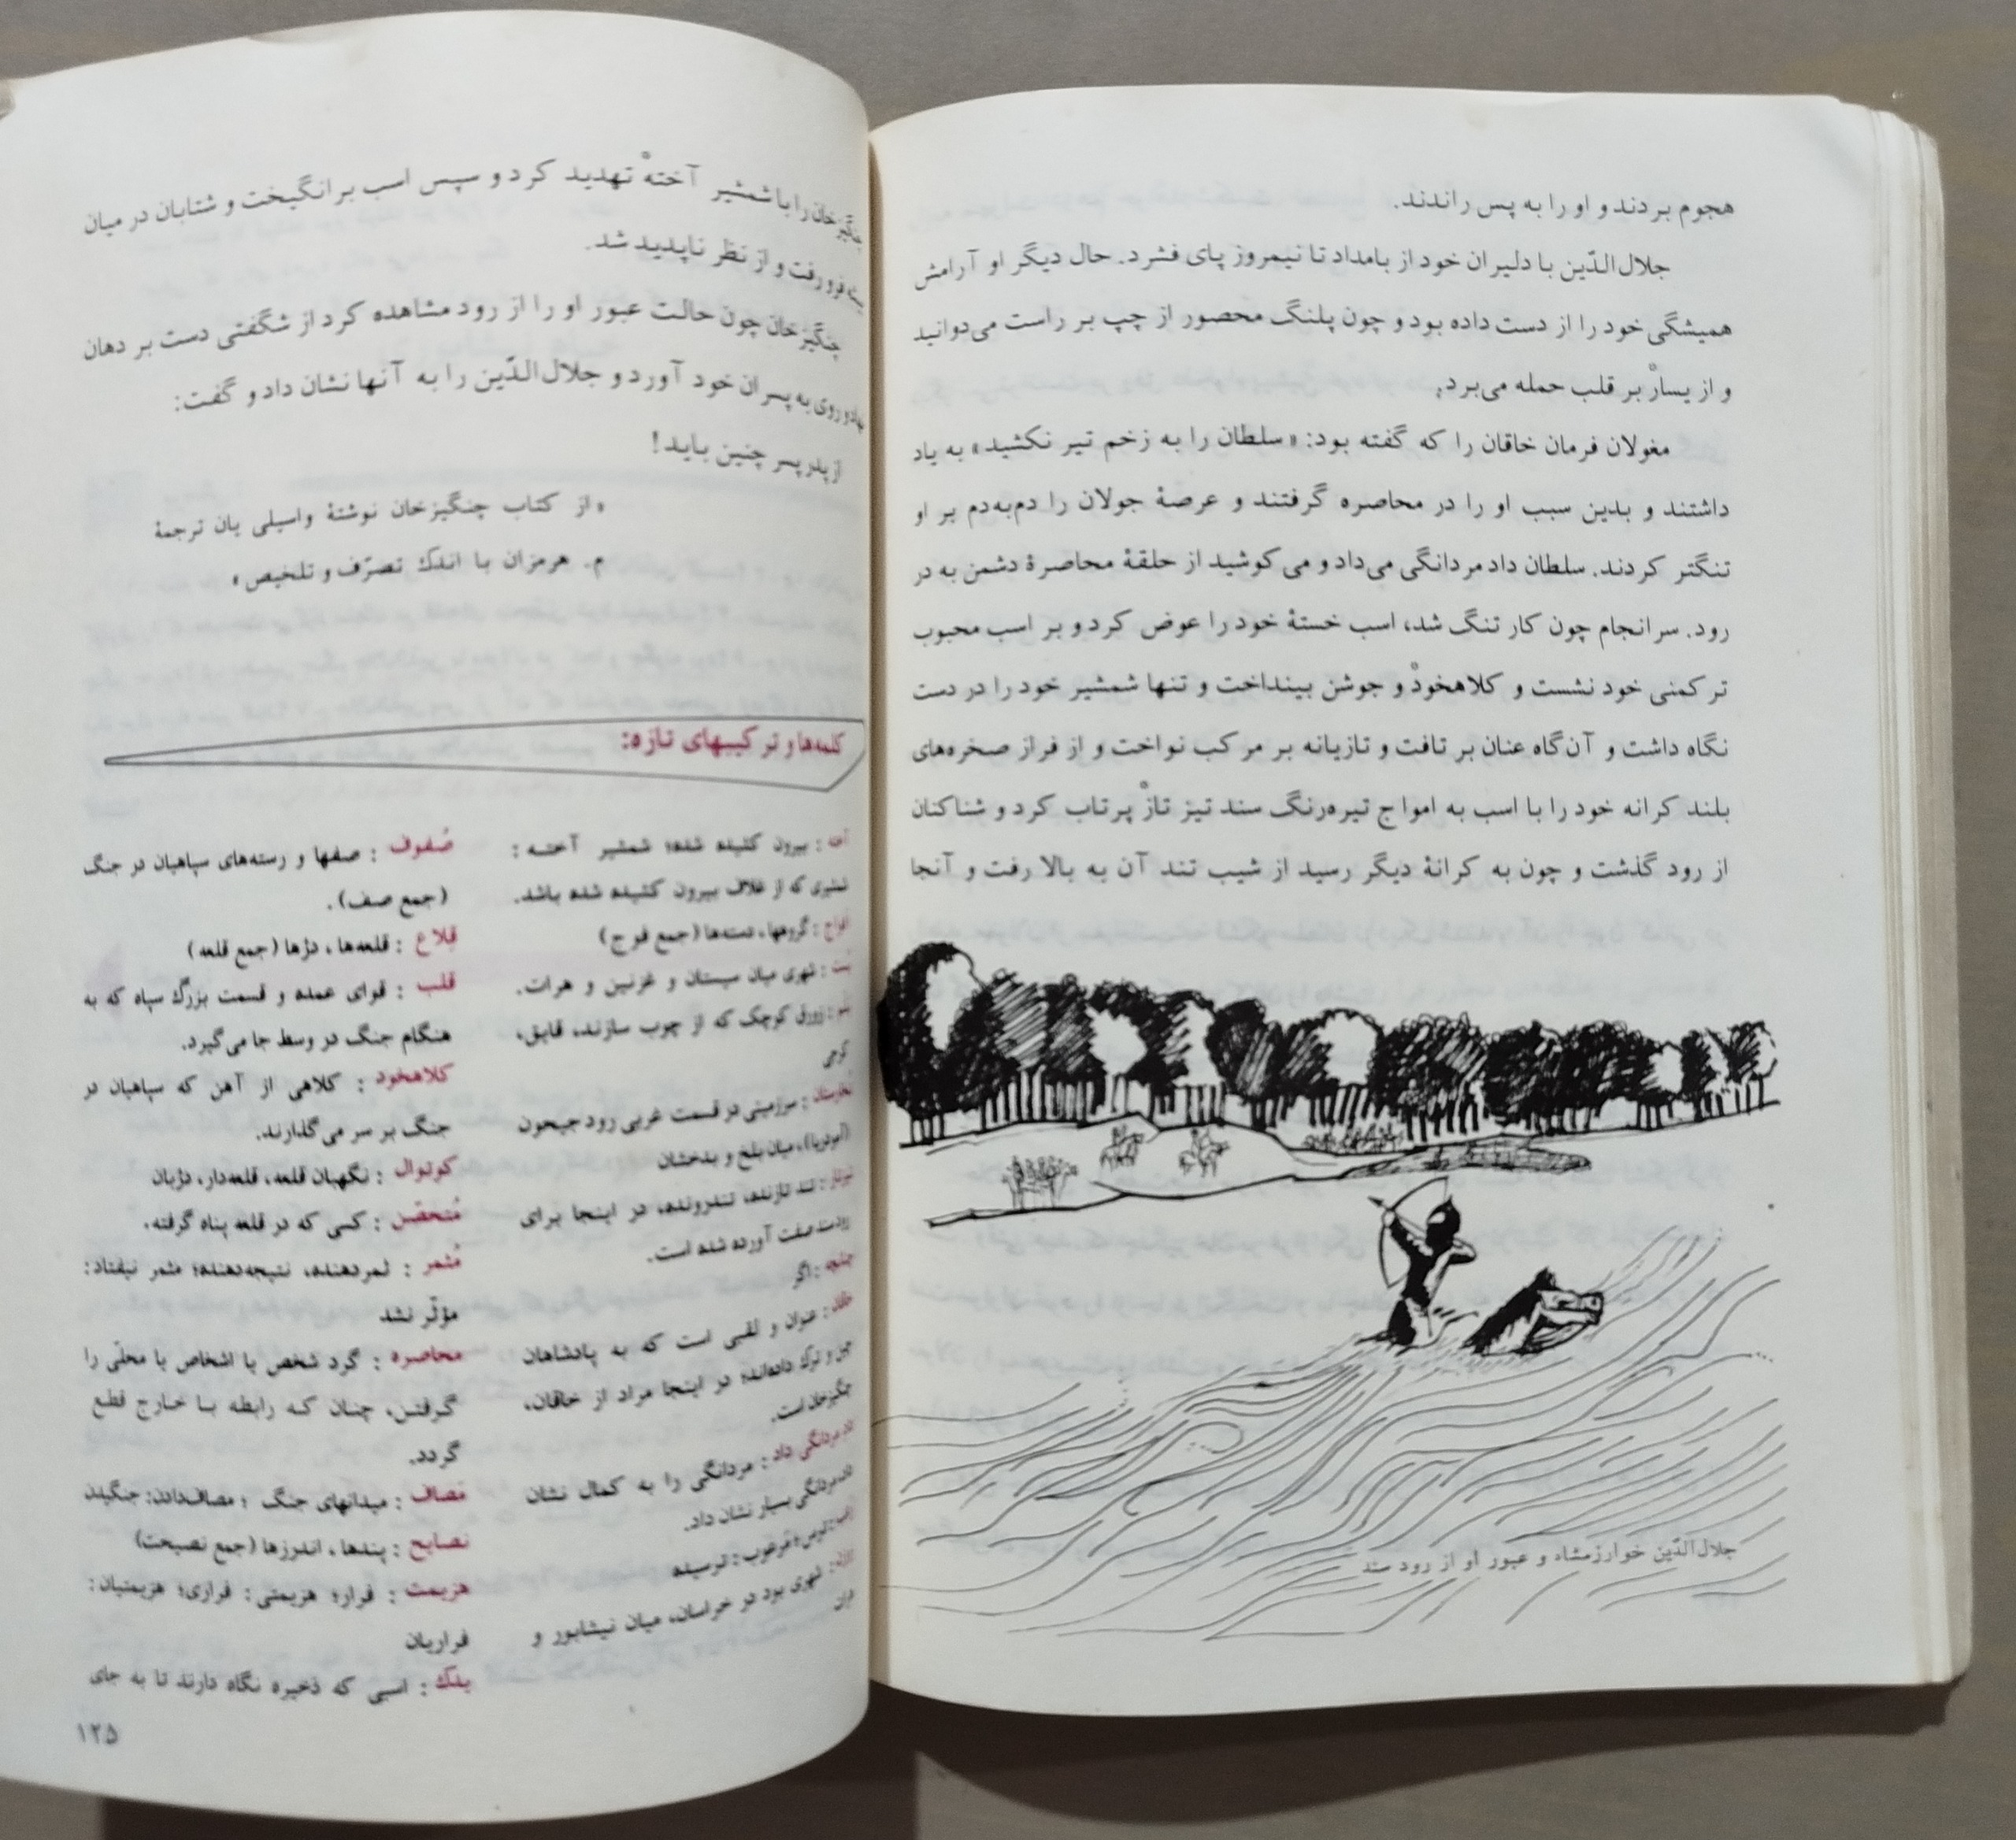 هجوم بردند و او را به پس راندند.
جلال‌الدّین با دلیران خود از بامداد تا نیمروز پای فشرد. حال دیگر او آرامش
همیشگی خود را از دست داده بود و چون پلنگ محصور از چپ بر راست می‌دوانید
و از یسارْ بر قلب حمله می‌برد.
مغولان فرمان خاقان را که گفته بود: «سلطان را به زخم تیر نکشید» به یاد
داشتند و بدین سبب او را در محاصره گرفتند و عرصهٔ جولان را دم‌به‌دم بر او
تنگتر کردند. سلطان داد مردانگی می‌داد و می‌کوشید از حلقهٔ محاصرهٔ دشمن به در
رود. سرانجام چون کار تنگ شد، اسب خستهٔ خود را عوض کرد و بر اسب محبوب
ترکمنی خود نشست و کلاهخودْ و جوشن بینداخت و تنها شمشیر خود را در دست
نگاه داشت و آن‌گاه عنان بر تافت و تازیانه بر مرکب نواخت و از فراز صخره‌های
بلند کرانه خود را با اسب به امواج تیره‌رنگ سند تیز تازْ پرتاب کرد و شناکنان
از رود گذشت و چون به کرانهٔ دیگر رسید از شیب تند آن به بالا رفت و آنجا
جلال‌الدّین خوارزمشاه و عبور او از رود سند
چنگیزخان را با شمشیر آختهْ تهدید کرد و سپس اسب برانگیخت و شتابان در میان
فرو رفت و از نظر ناپدید شد.
چنگیزخان چون حالت عبور او را از رود مشاهده کرد از شگفتی دست بر دهان
نهاد و روی به پسران خود آورد و جلال‌الدّین را به آنها نشان داد و گفت:
از پدر پسر چنین باید!
«از کتاب چنگیزخان نوشتهٔ واسیلی یان ترجمهٔ
م. هرمزان با اندک تصرّف و تلخیص»
کلمه‌ها و ترکیبهای تازه:
آخته : بیرون کشیده شده؛ شمشیر آخته :
شمشیری که از غلاف بیرون کشیده شده باشد.
افواج : گروهها، دسته‌ها (جمع فوج)
بُست : شهری میان سیستان و غزنین و هرات.
زورق کوچک که از چوب سازند، قایق،
کرجی
تخارستان : سرزمینی در قسمت غربی رود جیحون
(آمودریا)، میان بلخ و بدخشان
تیزتاز : تند تازنده، تندرونده، در اینجا برای
رود سند صفت آورده شده است.
چنانچه : اگر
خاقان : عنوان و لقبی است که به پادشاهان
چین و ترک داده‌اند؛ در اینجا مراد از خاقان،
چنگیزخان است.
داد مردانگی داد : مردانگی را به کمال نشان
داد، مردانگی بسیار نشان داد.
رعب : ترس؛ مرعوب : ترسیده
شهری بود در خراسان، میان نیشابور و
هرات
صُفوف : صفها و رسته‌های سپاهیان در جنگ
(جمع صف).
قِلاع : قلعه‌ها، دژها (جمع قلعه)
قلب : قوای عمده و قسمت بزرگ سپاه که به
هنگام جنگ در وسط جا می‌گیرد.
کلاهخود : کلاهی از آهن که سپاهیان در
جنگ بر سر می‌گذارند.
کوتوال : نگهبان قلعه، قلعه‌دار، دژبان
مُتحصّن : کسی که در قلعه پناه گرفته.
مُثمر : ثمردهنده، نتیجه‌دهنده؛ مثمر نیفتاد:
مؤثّر نشد
محاصره : گرد شخص یا اشخاص یا محلّی را
گرفتن، چنان که رابطه با خارج قطع
گردد.
مَصاف : میدانهای جنگ ؛ مصاف‌دادن: جنگیدن
نصایح : پندها، اندرزها (جمع نصیحت)
هزیمت : فرار؛ هزیمتی : فراری؛ هزیمتیان :
فراریان
یدک : اسبی که ذخیره نگاه دارند تا به جای
۱۲۵